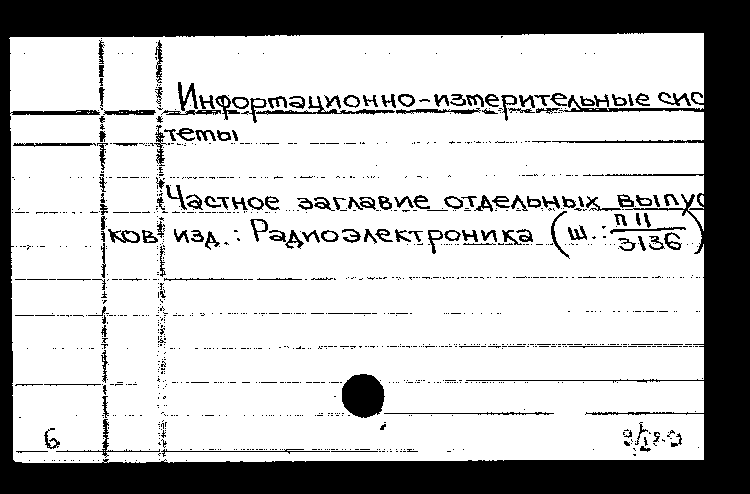 Информационно-измерительные сис
темы
Частное заглавие отдельных выпус
ков изд.: Радиоэлектроника (ш.: П 11
3136)
6